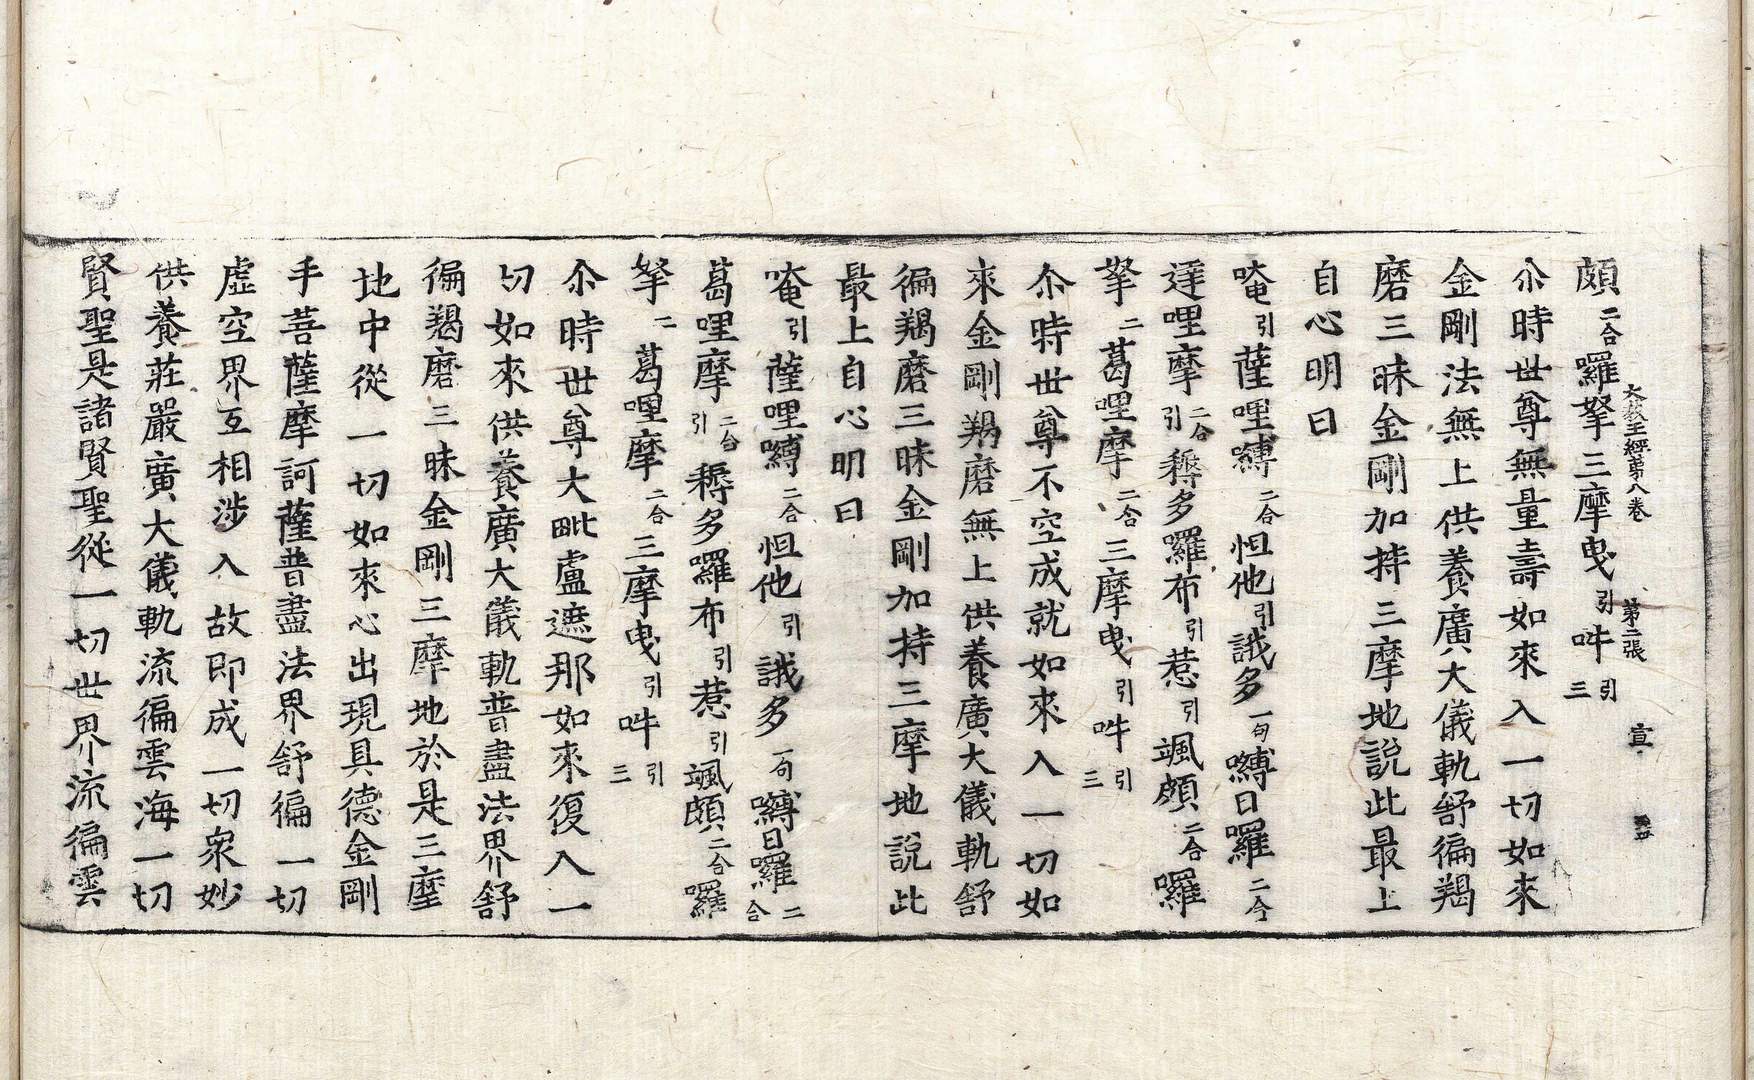 頗二合羅拏三摩曳引吽引三
大教王經第八卷 第二張 宣
尒時世尊無量壽如來入一切如來
金剛法無上供養廣大儀軌舒徧羯
磨三昧金剛加持三摩地說此最上
自心明曰
唵引薩哩嚩二合怛他引誐多一句嚩日囉二合
達哩摩二合引耨多囉布引惹引颯頗二合囉
拏二葛哩摩二合三摩曳引吽引三
尒時世尊不空成就如來入一切如
來金剛羯磨無上供養廣大儀軌舒
徧羯磨三昧金剛加持三摩地說此
最上自心明曰
唵引薩哩嚩二合怛他引誐多一句嚩日囉二合
葛哩摩二合引耨多囉布引惹引颯頗二合囉
拏二葛哩摩二合三摩曳引吽引三
尒時世尊大毗盧遮那如來復入一
切如來供養廣大儀軌普盡法界舒
徧羯磨三昧金剛三摩地於是三摩
地中從一切如來心出現具德金剛
手菩薩摩訶薩普盡法界舒徧一切
虛空界互相涉入故即成一切衆妙
供養莊嚴廣大儀軌流徧雲海一切
賢聖是諸賢聖從一切世界流徧雲